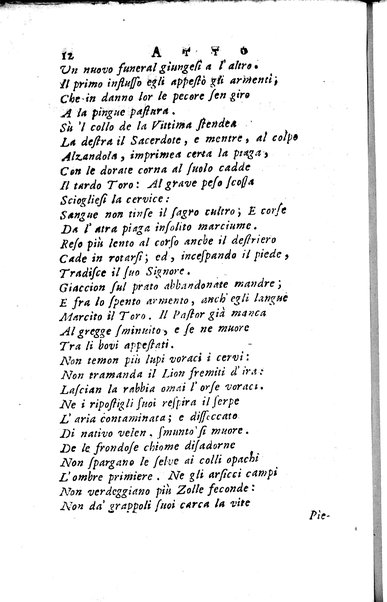 12 A T T O
Un nuovo funeral giungesi a l'altro.
Il primo influsso egli appestò gli armenti;
Che in danno lor le pecore sen giro
A la pingue pastura.
Sù 'l collo de la Vittima stendea
La destra il Sacerdote, e mentre, al colpo
Alzandola, imprimea certa la piaga,
Con le dorate corna al suolo cadde
Il tardo Toro: Al grave peso scossa
Sciogliesi la cervice:
Sangue non tinse il sagro cultro; E corse
Da l'atra piaga insolito marciume.
Reso più lento al corso anche il destriero
Cade in rotarsi; ed, incespando il piede,
Tradisce il suo Signore.
Giaccion sul prato abbandonate mandre;
E fra lo spento armento, anch'egli langue
Marcito il Toro. Il Pastor già manca
Al gregge sminuito, e se ne muore
Tra li bovi appestati.
Non temon più lupi voraci i cervi:
Non tramanda il Lion fremiti d'ira:
Lascian la rabbia omai l'orse voraci.
Ne i ripostigli suoi respira il serpe
L'aria contaminata; e disseccato
Di nativo velen, smunto si muore.
De le frondose chiome disadorne
Non spargano le selve ai colli opachi
L'ombre primiere. Ne gli arsicci campi
Non verdeggiano più Zolle feconde:
Non da' grappoli suoi carca la vite
Pie-